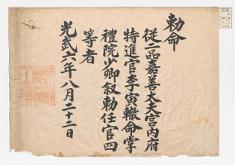 勅命
從二品嘉善大夫宮內府
特進官李寅轍命掌
禮院少卿敘勅任官四
等者
光武六年八月二十二日